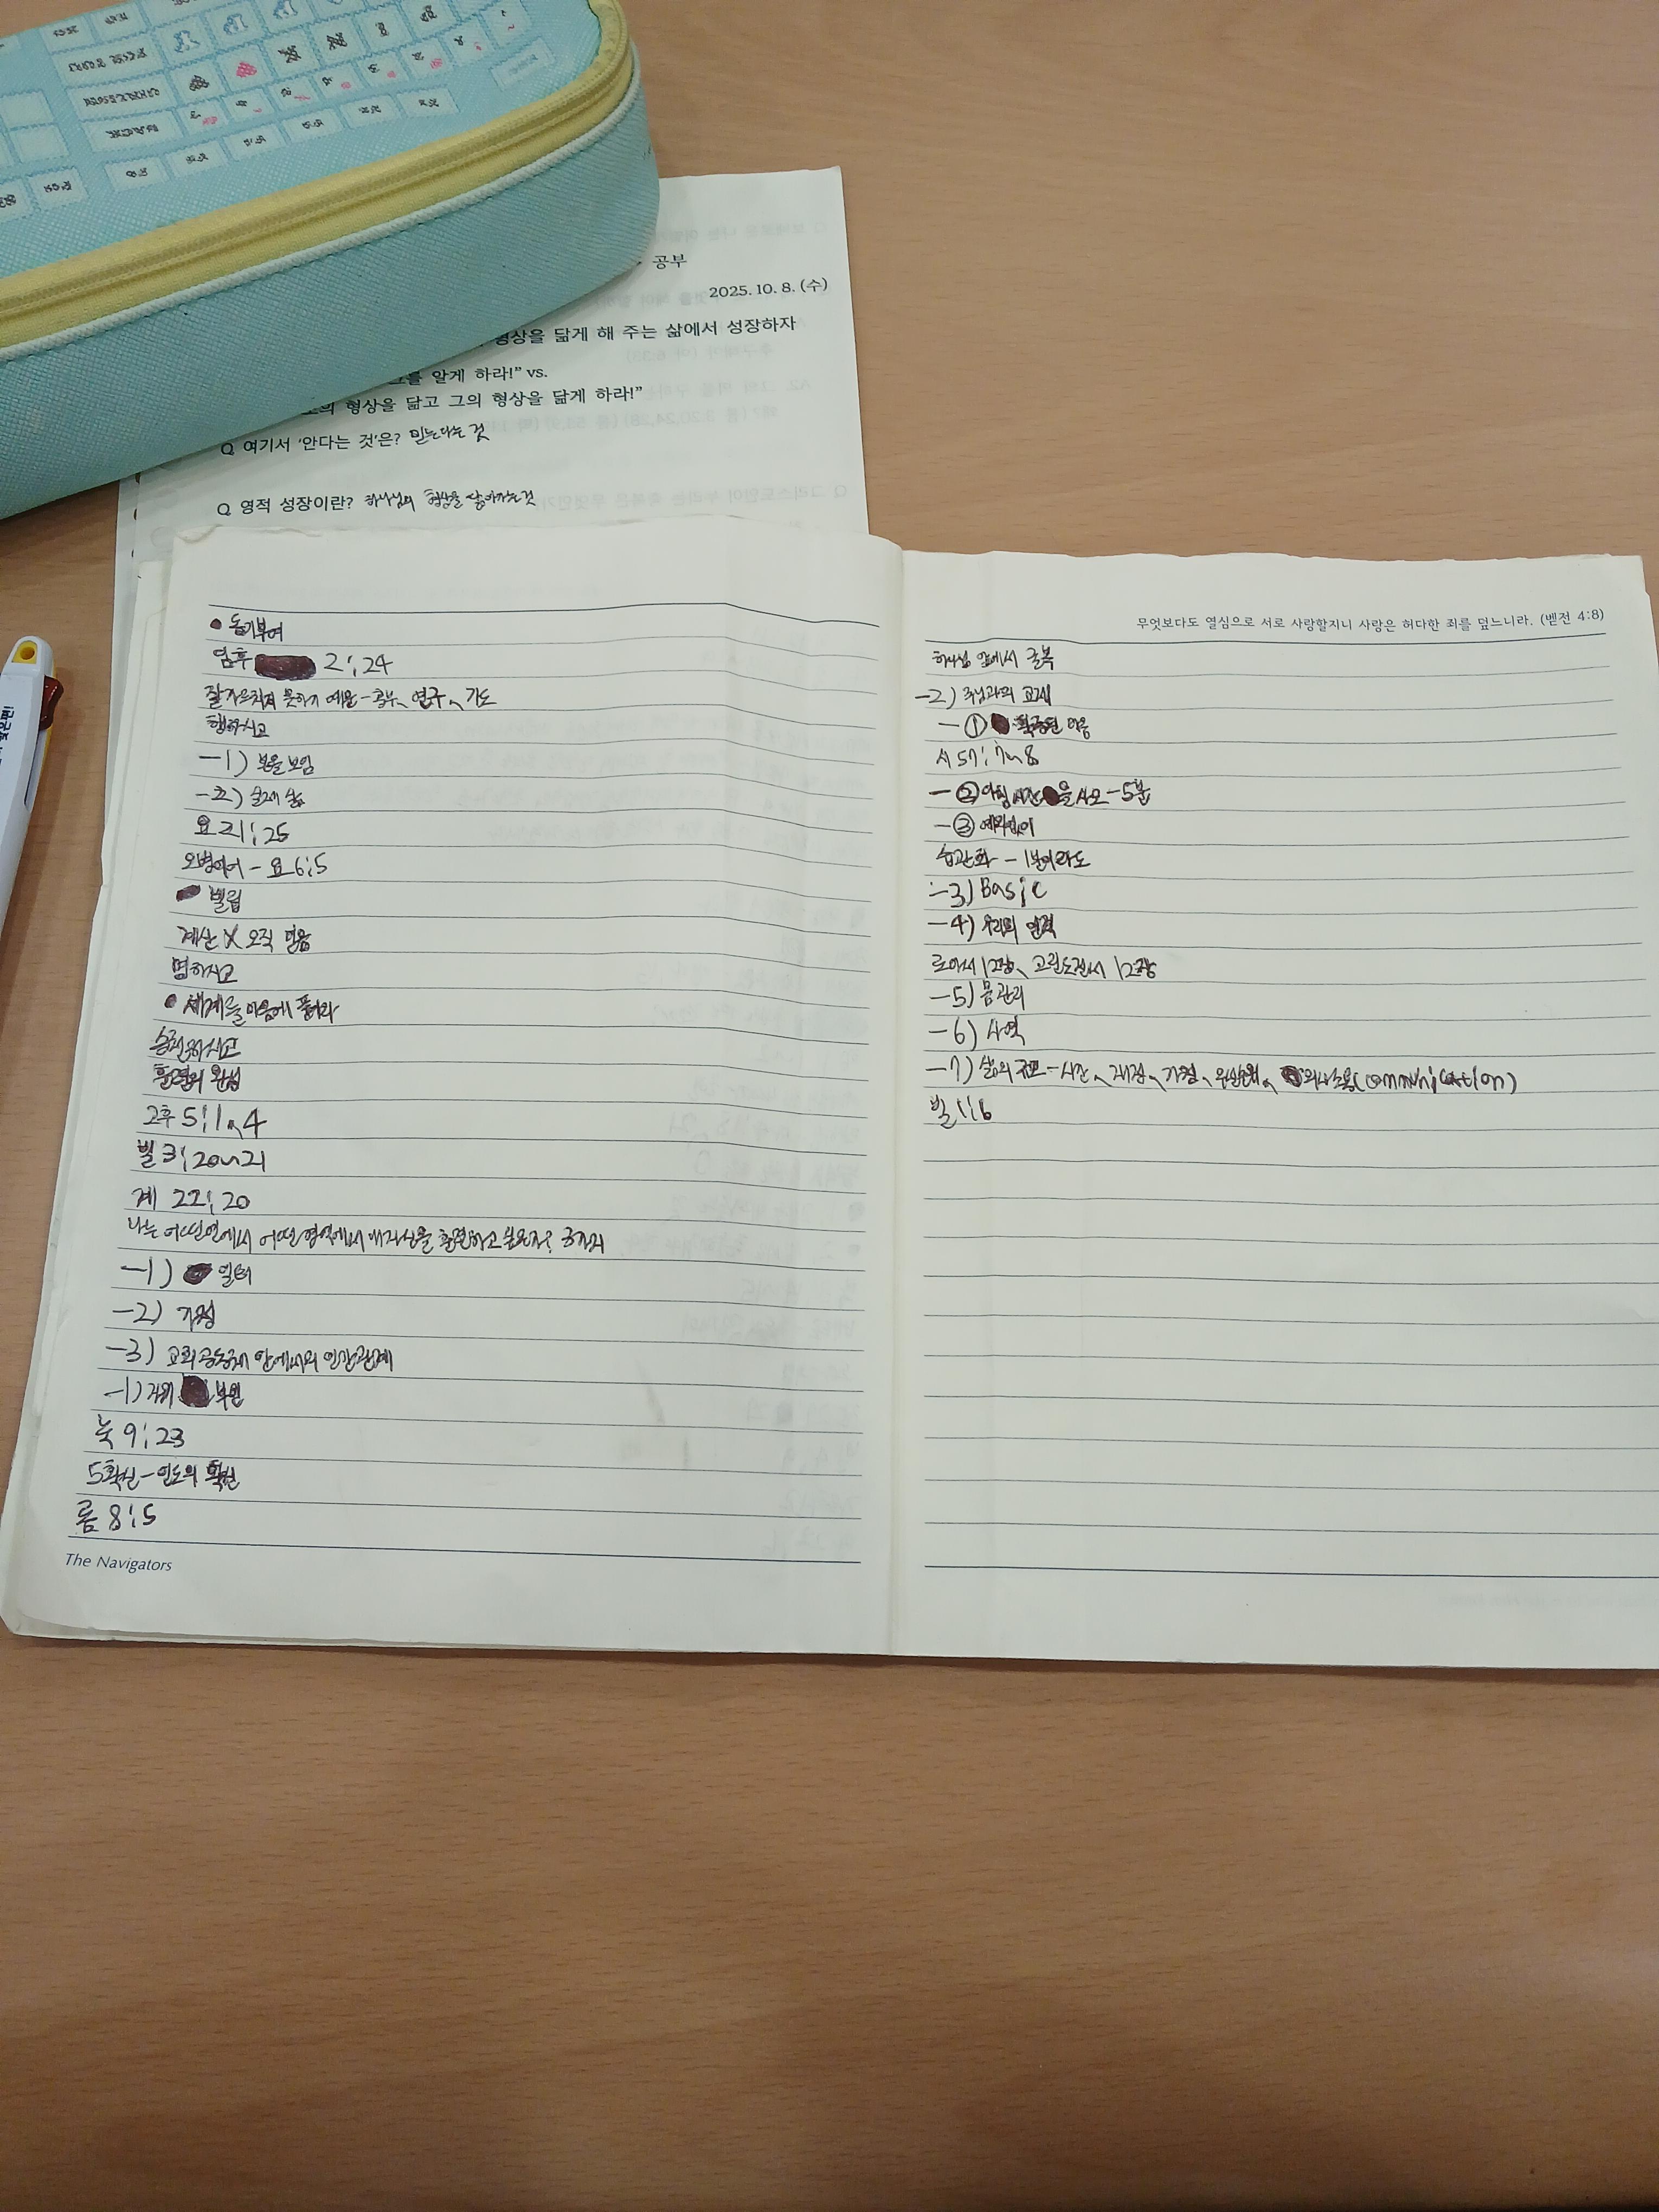 공부
2025. 10. 8. (수)
형상을 닮게 해 주는 삶에서 성장하자
를 알게 하라!” vs.
의 형상을 닮고 그의 형상을 닮게 하라!”
Q 여기서 ‘안다는 것’은? 믿는다는 것
Q 영적 성장이란? 하나님의 형상을 닮아가는 것
동기부여
딤후 2:24
잘 가르치지 못하기 때문 - 공부, 연구, 기도
행하시고
-1) 본을 보임
-2) 실제 삶
요 21:25
오병이어 - 요 6:5
빌립
계산 X 오직 믿음
명하시고
세계를 마음에 품어라
승천하시고
훈련의 완성
고후 5:1, 4
빌 3:20~21
계 22:20
나는 어떤 면에서 어떤 영역에서 내 자신을 훈련하고 싶은지? 3가지
-1) 일터
-2) 가정
-3) 교회 공동체 안에서의 인간관계
-1) 자기 부인
눅 9:23
5확신 - 인도의 확신
롬 8:5
The Navigators
무엇보다도 열심으로 서로 사랑할지니 사랑은 허다한 죄를 덮느니라. (벧전 4:8)
하나님 앞에서 굴복
-2) 주님과의 교제
-① 확정된 마음
시 57:7~8
-② 아침 시간을 사모 - 5분
-③ 예외없이
습관화 - 1분이라도
-3) Basic
-4) 우리의 인격
로마서 12장, 고린도전서 12장
-5) 몸 관리
-6) 사역
-7) 삶의 - 시간, 재정, 가정, 우선순위, 의사소통(communication)
빌 1:6